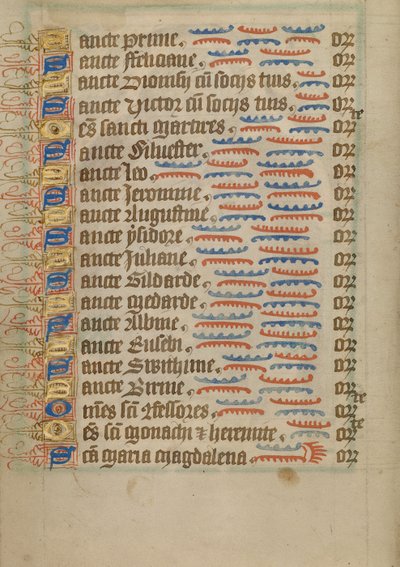 Sancte Prime. or
Sancte ffeliciane. or
Sancte Dionisij cū socijs tuis. or
Sancte Victor cū socijs tuis. or
Oēs sancti Martires. orte
Sancte Siluester. or
Sancte Leo. or
Sancte Jeronime. or
Sancte Augustine. or
Sancte ysidore. or
Sancte Juliane. or
Sancte Gildarde. or
Sancte Medarde. or
Sancte Albine. or
Sancte Eusebi. or
Sancte Swithune. or
Sancte Birine. or
Om̄es sc̄i 9fessores. orte
Oēs sc̄i Monachi ⁊ heremite. orte
Sc̄a Maria Magdalena. or